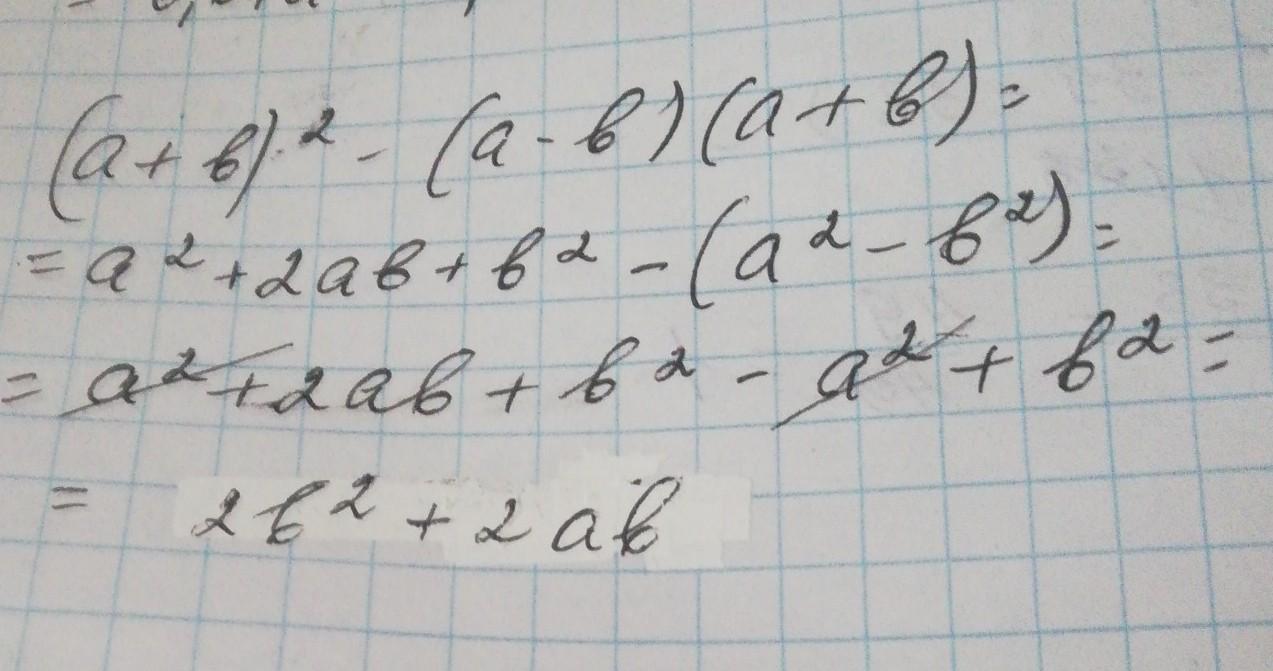 (a + b)² - (a - b)(a + b) =
= a² + 2ab + b² - (a² - b²) =
= a² + 2ab + b² - a² + b² =
= 2b² + 2ab